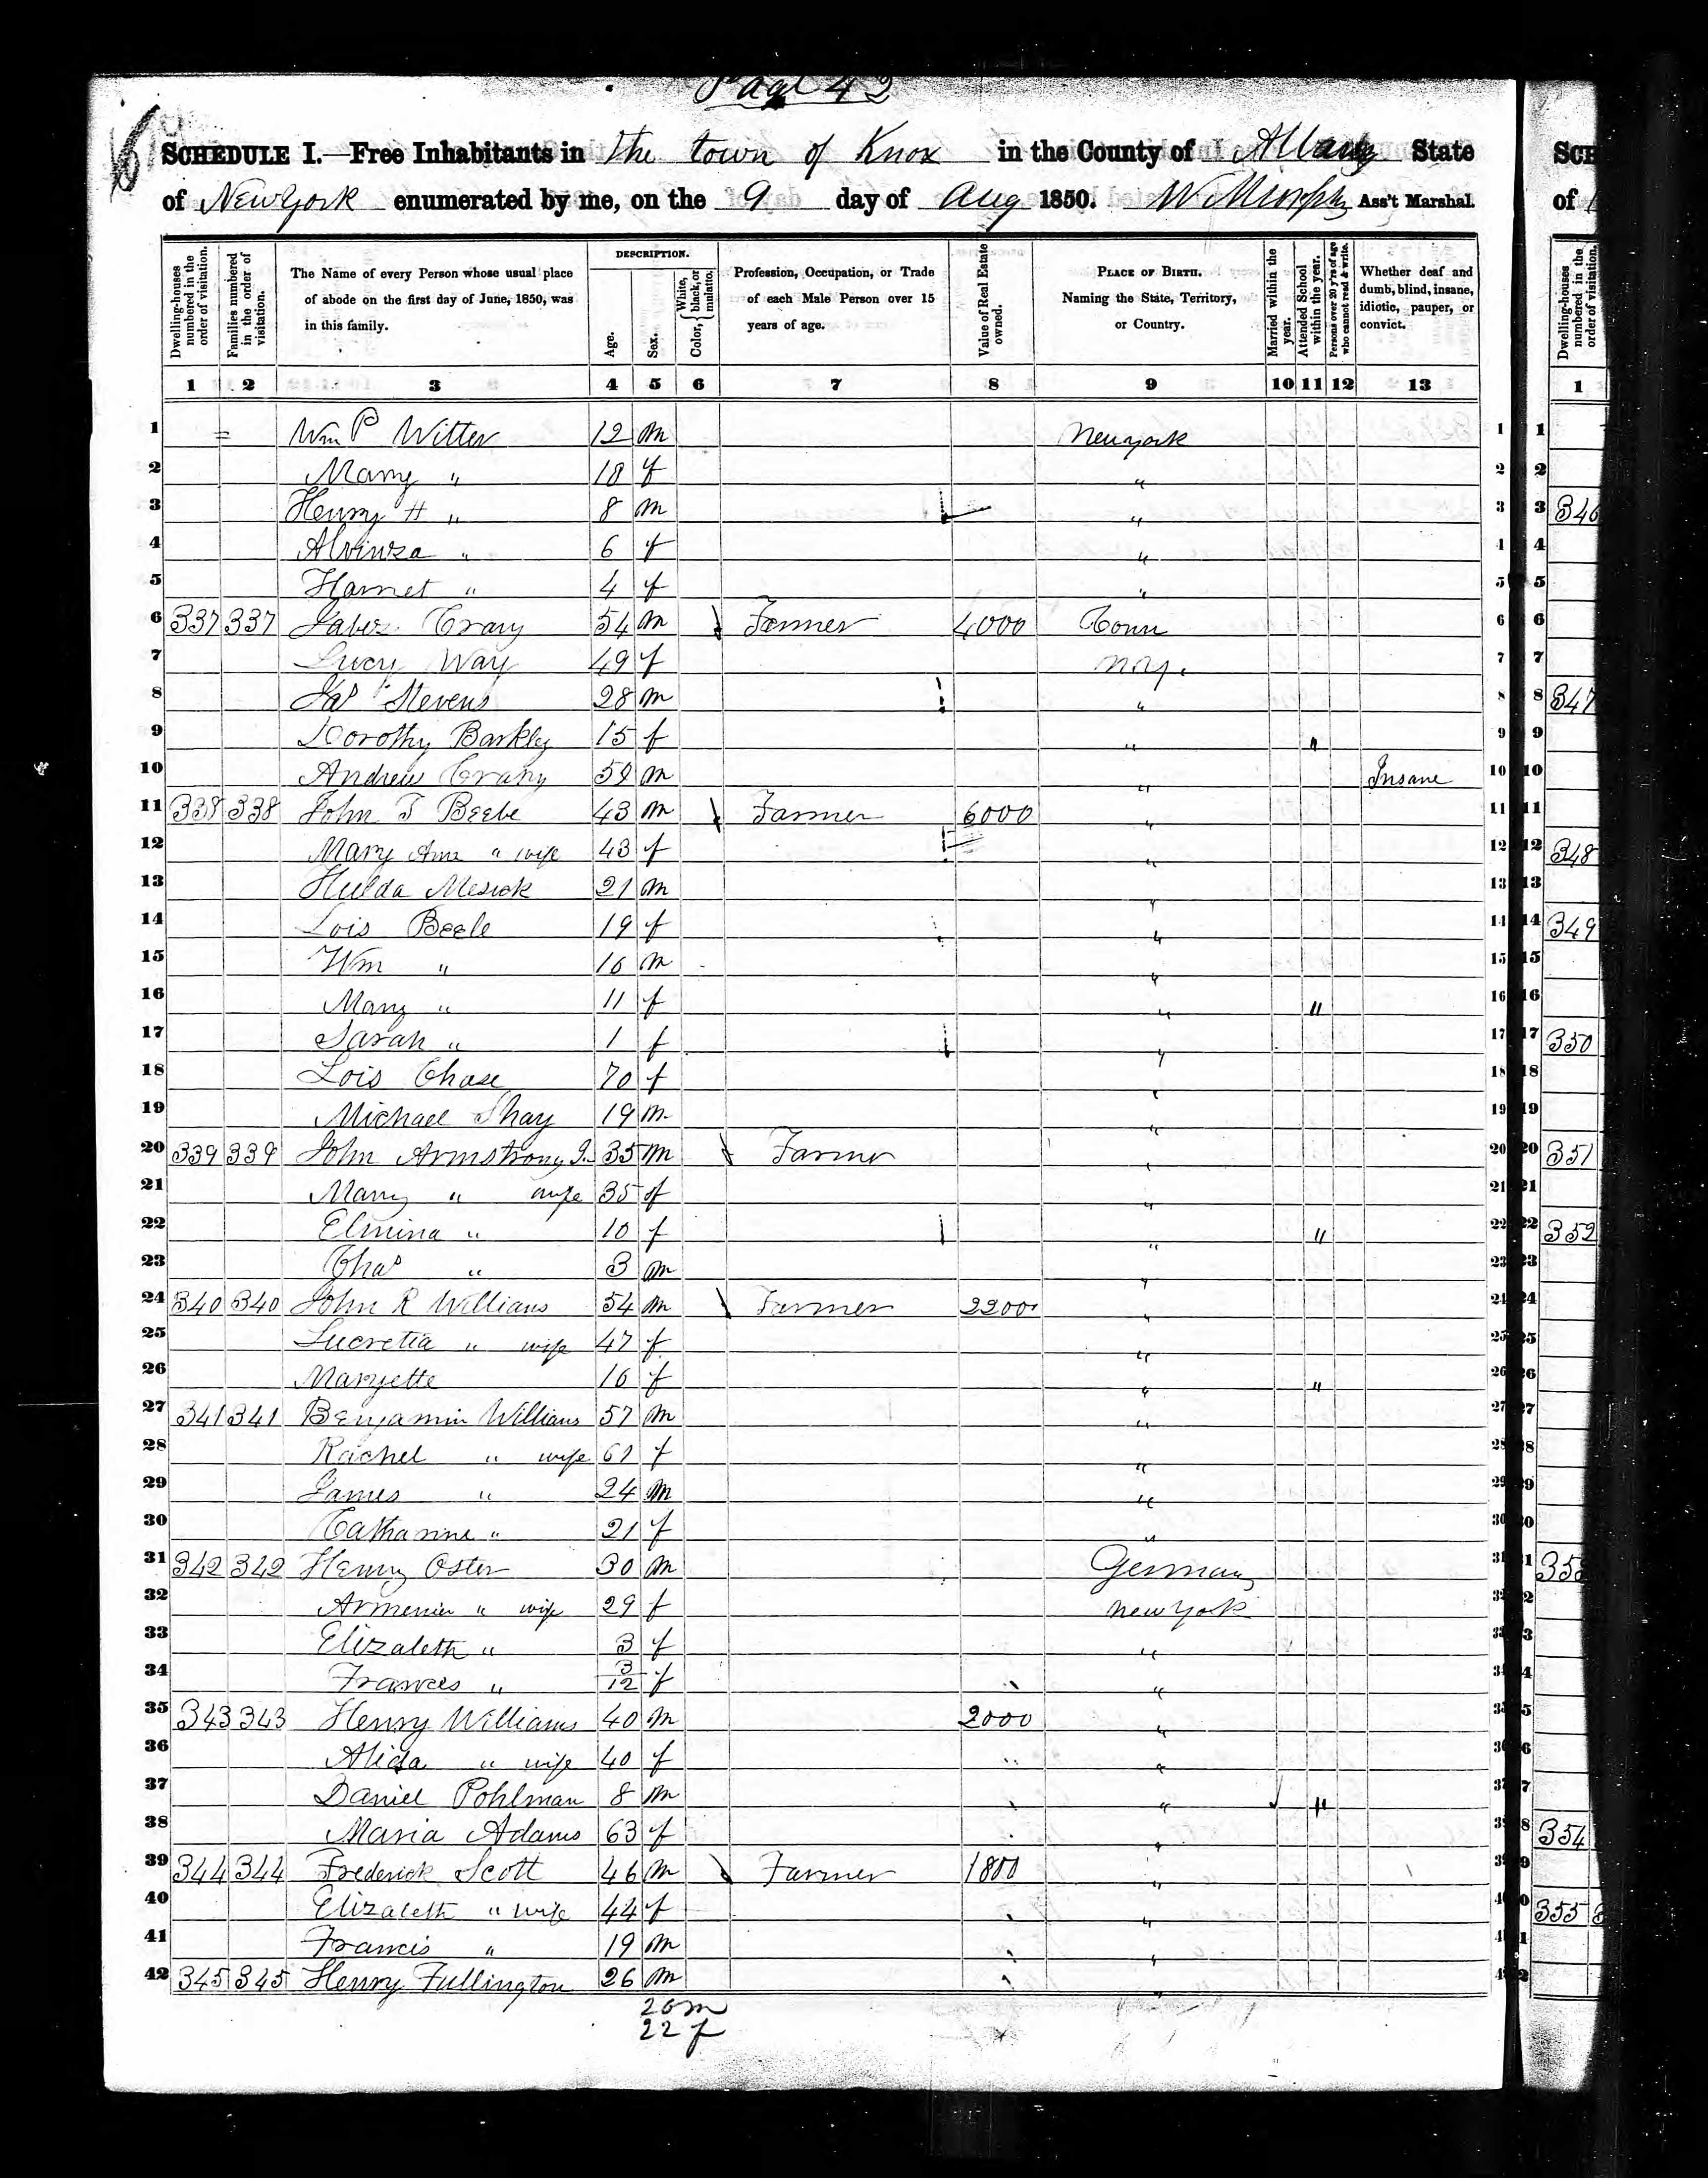 Page 42
SCHEDULE I.—Free Inhabitants in the town of Knox in the County of Albany State
of New York enumerated by me, on the 9 day of Aug 1850. W Murphy Ass't Marshal.
Dwelling-houses numbered in the order of visitation. Families numbered in the order of visitation. The Name of every Person whose usual place of abode on the first day of June, 1850, was in this family. DESCRIPTION. Age. Sex. Color, { White, black, or mulatto. Profession, Occupation, or Trade of each Male Person over 15 years of age. Value of Real Estate owned. PLACE OF BIRTH. Naming the State, Territory, or Country. Married within the year. Attended School within the year. Persons over 20 y'rs of age who cannot read & write. Whether deaf and dumb, blind, insane, idiotic, pauper, or convict.
1 2 3 4 5 6 7 8 9 10 11 12 13
1 Wm P Witter 12 m New york 1
2 Mary " 10 f " 2
3 Henry H " 8 m " 3
4 " 6 f " 4
5 Harriet " 4 f " 5
6 337 337 Jabez Crary 54 m Farmer 4000 Conn 6
7 Lucy Way 49 f N.Y. 7
8 Jas Stevens 28 m " 8
9 Dorothy Barkly 15 f " " 9
10 Andrew Crary m " Insane 10
11 338 338 John T Beebe 43 m Farmer 6000 " 11
12 Mary Ann " wife 43 f " 12
13 Hulda Mesick 21 m " 13
14 Lois Beebe 19 f " 14
15 Wm " 16 m " 15
16 Mary " 11 f " " 16
17 Sarah " 1 f " 17
18 Lois Chase 70 f " 18
19 Michael Shay 19 m " 19
20 339 339 John Armstrong J. 35 m Farmer " 20
21 Mary " wife 35 f " 21
22 Elmina " 10 f " " 22
23 Chas " 3 m " 23
24 340 340 John R Williams 54 m Farmer 2200 " 24
25 Lucretia " wife 47 f " 25
26 Maryette 16 f " " 26
27 341 341 Benjamin Williams 57 m " 27
28 Rachel " wife 61 f " 28
29 James " 24 m " 29
30 Catharine " 21 f " 30
31 342 342 Henry Oster 30 m Germany 31
32 Armenia " wife 29 f New York 32
33 Elizabeth " 3 f " 33
34 Frances " 3/12 f " 34
35 343 343 Henry Williams 40 m 2000 " 35
36 Alida " wife 40 f " 36
37 Daniel Pohlman 8 m " " 37
38 Maria Adams 63 f " 38
39 344 344 Frederick Scott 46 m Farmer 1800 " 39
40 Elizabeth " wife 44 f " 40
41 Francis " 19 m " 41
42 345 345 Henry Fullington 26 m " 42
20 m
22 f
SCH
of
Dwelling-houses numbered in the order of visitation.
1
1
2
3 346
4
5
6
7
8 347
9
10
11
12 348
13
14 349
15
16
17 350
18
19
20 351
21
22 352
23
24
25
26
27
28
29
30
31 353
32
33
34
35
36
37
38 354
39
40 355
41
42